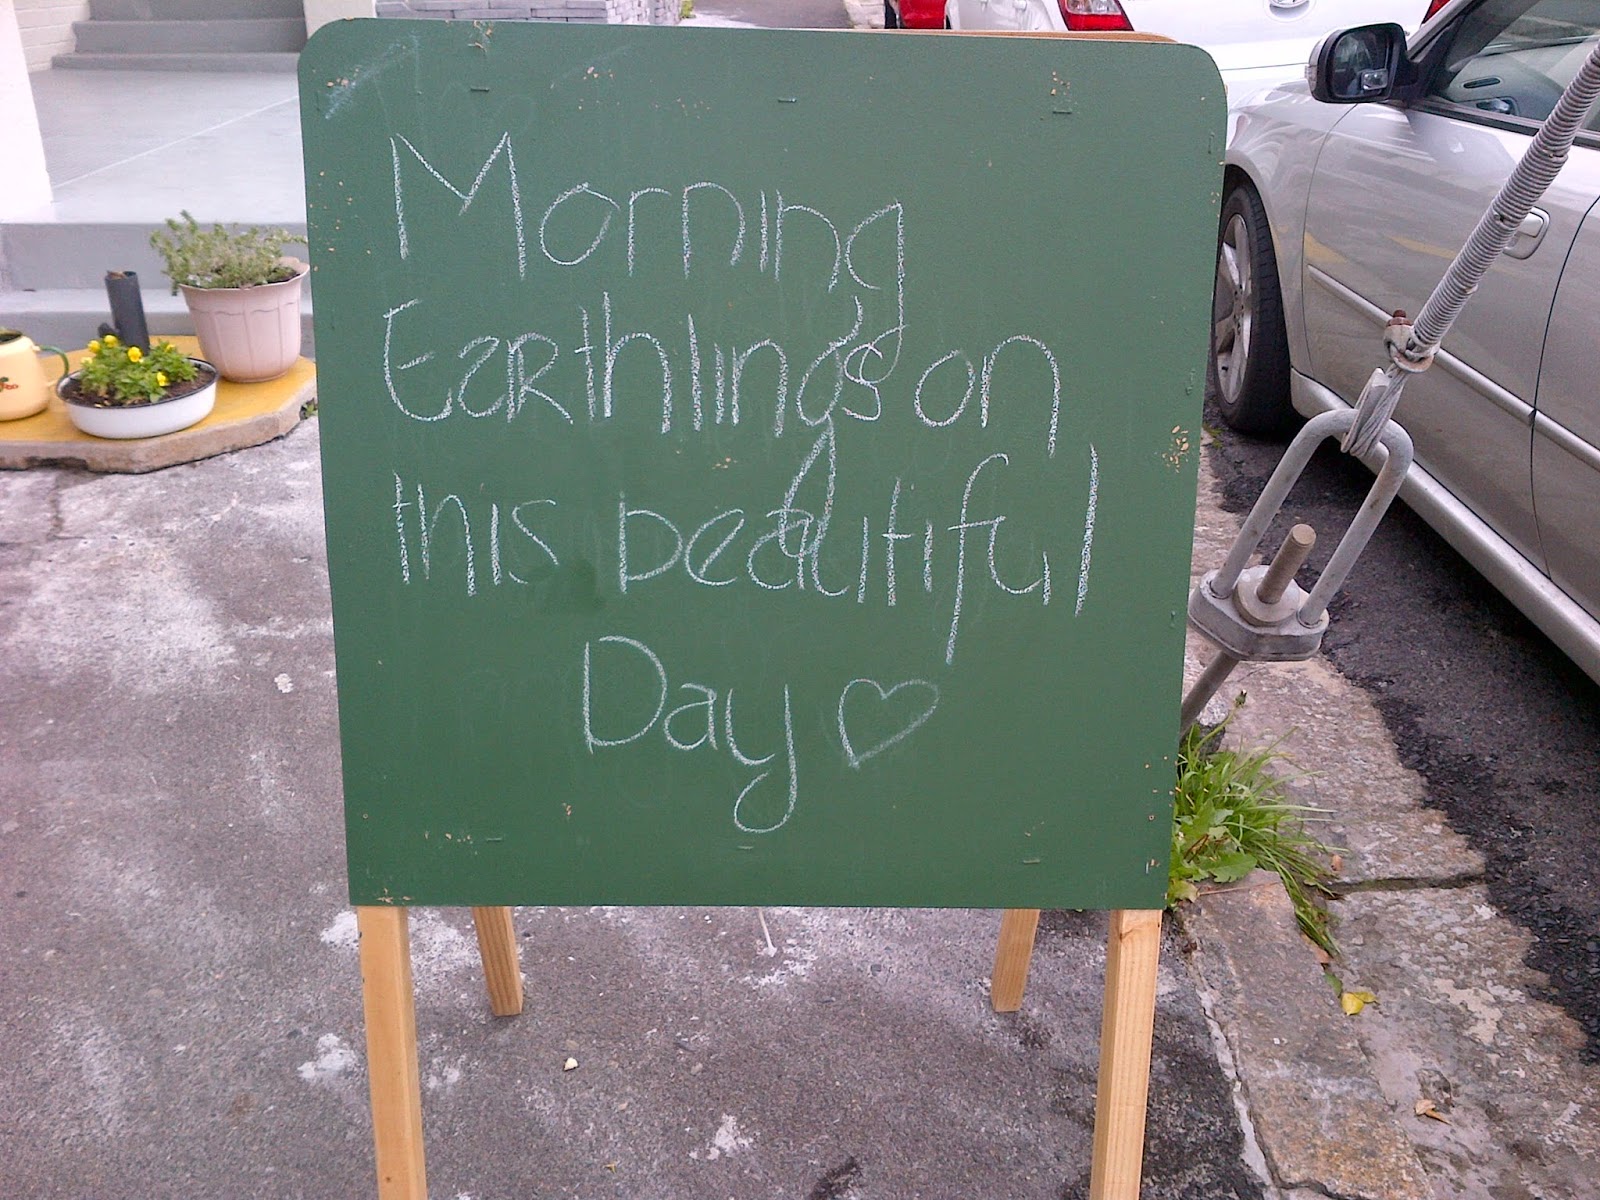 Morning
Earthlings on
this beautiful
Day ♡